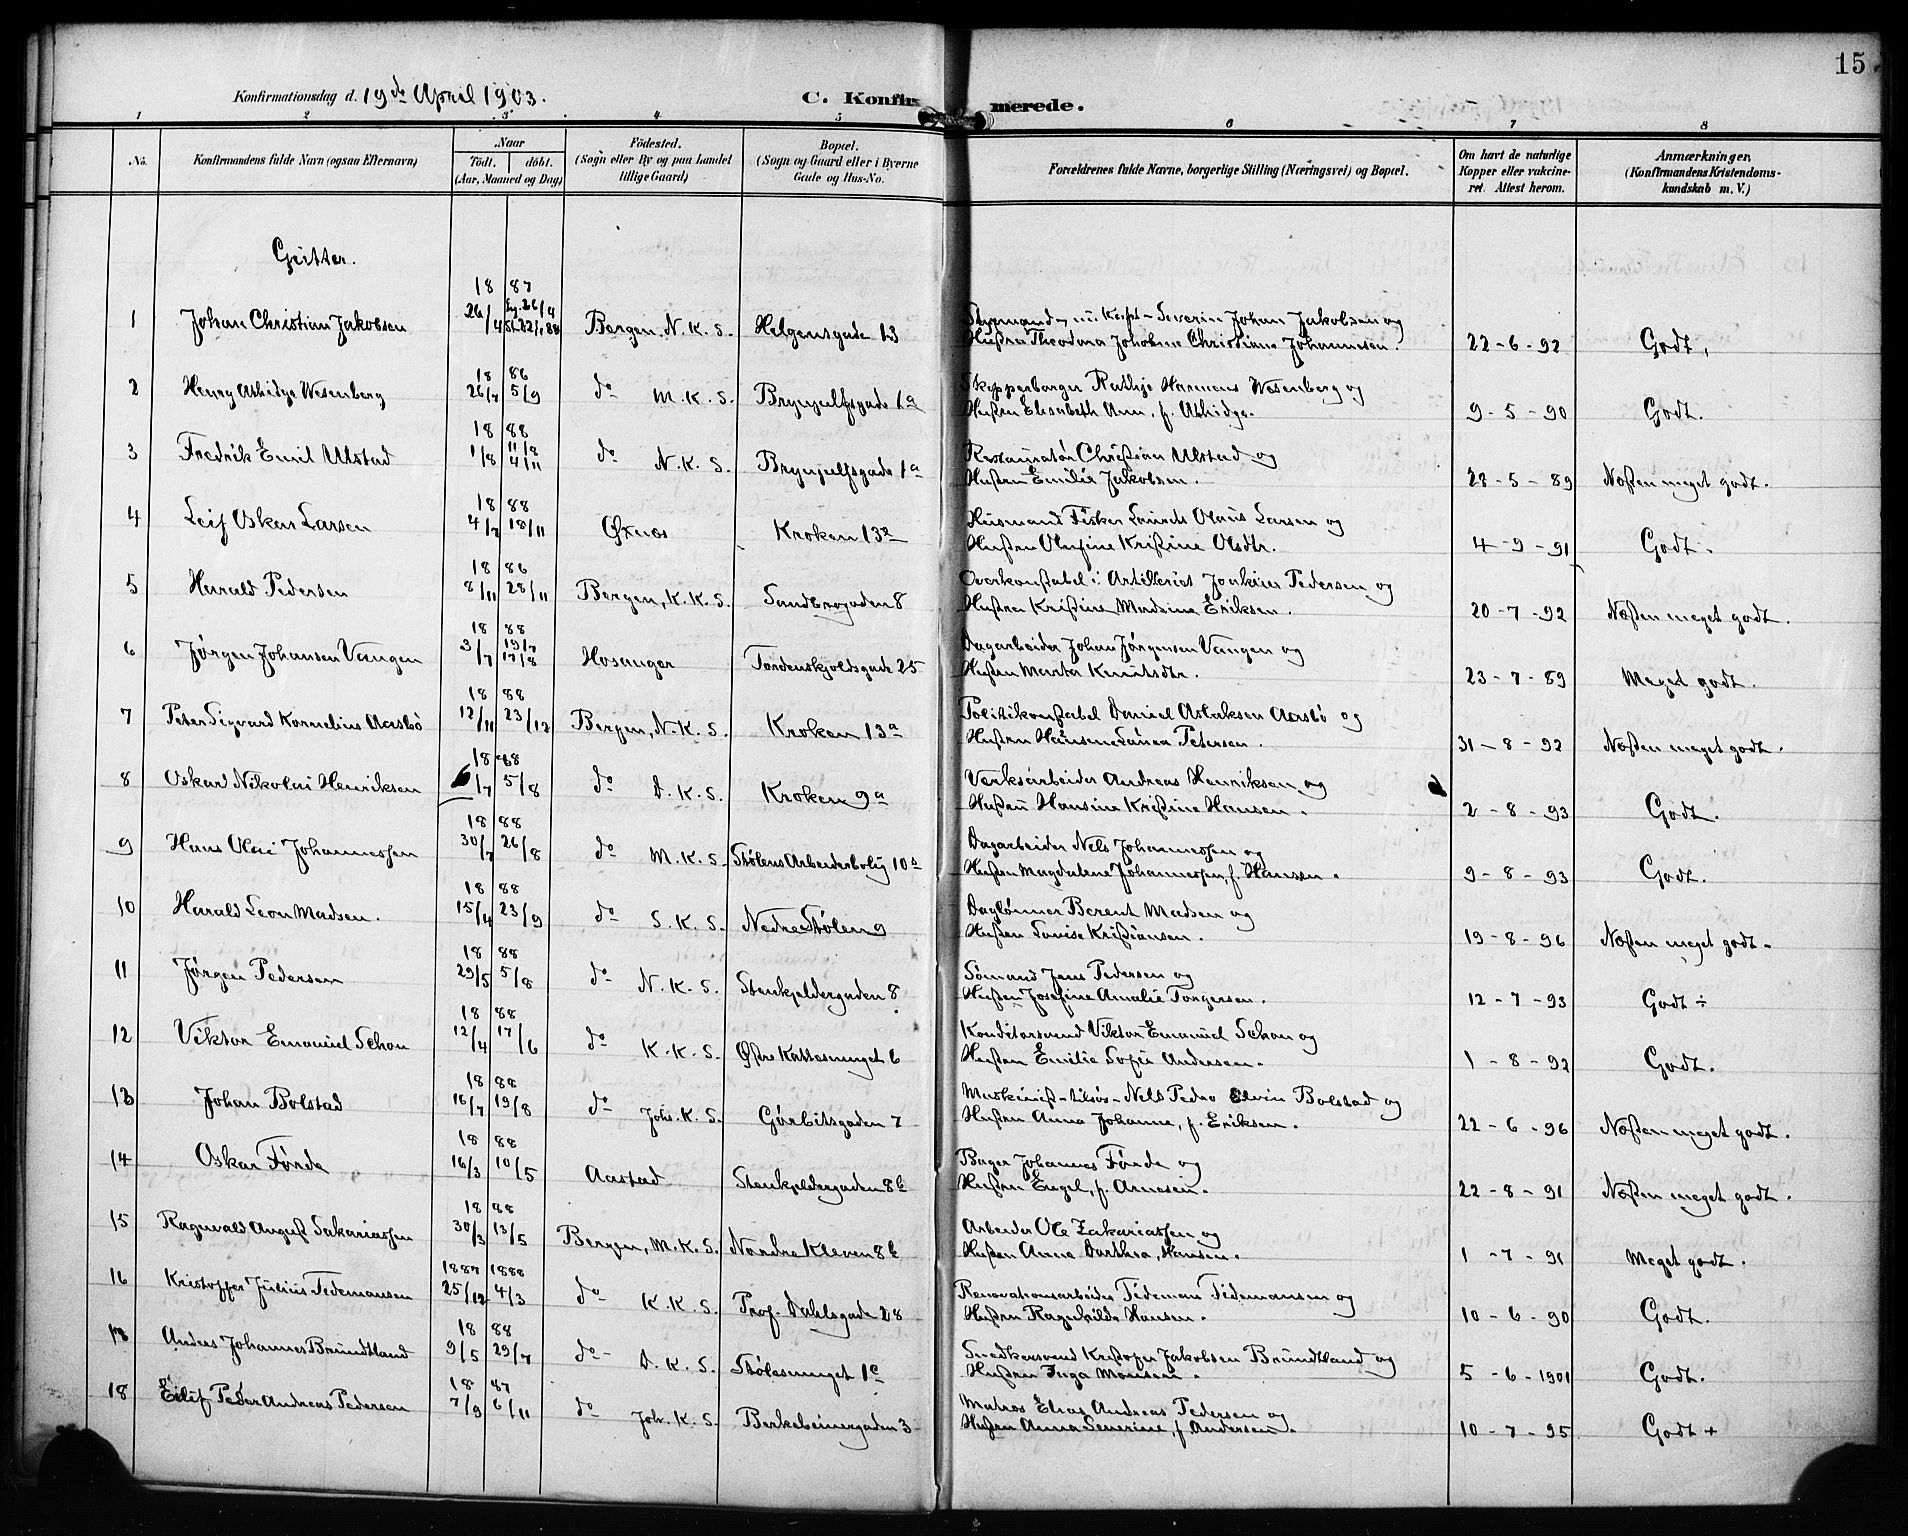 15
Konfirmationsdag d. 19de April 1903.
C. Konfirmerede.
1 2 3 4 5 6 7 8
No.
Konfirmandens fulde Navn (ogsaa Efternavn)
Naar
Födt. döbt.
(Aar, Maaned og Dag)
Födested.
(Sogn eller By og paa Landet
tillige Gaard)
Bopæl.
(Sogn og Gaard eller i Byerne
Gade og Hus-No.
Forældrenes fulde Navne, borgerlige Stilling (Næringsvei) og Bopæl.
Om havt de naturlige
Kopper eller vakcine-
ret. Attest herom.
Anmærkninger.
(Konfirmandens Kristendoms-
kundskab m. V.)
Gutter.
18 87
1 Johan Christian Jakobsen 26/4 26/4 Bergen, N. K. S. Helgensgade 13
Severin Johan Jakobsen og
Hustru Theodora Christiane Johannesen. 22-6-92 Godt.
18 86
2 Henry Athidge Wesenberg 26/7 5/9 do M. K. S. Brynjulfsgade 1a
Skypperborger Rathje Harmens Wesenberg og
Hustru Elisabeth Ann, f. Athidge. 9-5-90 Godt.
18 88
3 Fredrik Emil Ulstad 1/8 11/8 4/11 do N. K. S. Brynjulfsgade 1a
Restauratør Christian Ulstad og
Hustru Emilie Jakobsen. 28-5-89 Næsten meget godt.
18 88
4 Leif Oskar Larsen 4/7 18/11 Øxnes Kroken 13a
Husmand Fisker Laurits Olaus Larsen og
Hustru Olufine Kristine Olsdtr. 4-9-91 Godt.
18 86
5 Harald Pedersen 8/11 28/11 Bergen, K. K. S. Sandbrogaden 8
Overkonstabel i Artilleriet Joakim Pedersen og
Hustru Kristine Madsina Eriksen. 20-7-92 Næsten meget godt.
18 88
6 Jørgen Johansen Vangen 3/7 19/7 17/8 Hosanger Tordenskjoldsgade 25
Dagarbeider Johan Jørgensen Vangen og
Hustru Marta Knutsdtr. 23-7-89 Meget godt.
18 88
7 Peter Sigvard Kornelius Aasbö 12/11 23/12 Bergen, N. K. S. Kroken 13a
Politikonstabel Daniel Aslaksen Aasbö og
Hustru Hansine Laura Petersen. 31-8-92 Næsten meget godt.
18 88
8 Oskar Nikolai Henriksen 6/7 5/8 do D. K. S. Kroken 9a
Verksarbeider Andreas Henriksen og
Hustru Hansine Kristine Hansen. 2-8-93 Godt.
18 88
9 Hans Olai Johannessen 30/7 26/8 do M. K. S. Stølens Arbeiderbolig 10a
Dagarbeider Nels Johannessen og
Hustru Magdalene Johannessen, f. Hansen. 9-8-93 Godt.
18 88
10 Harald Leon Madsen. 15/4 23/9 do S. K. S. Nedre Stølen 9
Daglønner Berent Madsen og
Hustru Lovise Kristiansen. 19-8-96 Næsten meget godt.
18 88
11 Jørgen Pedersen 29/5 5/8 do N. K. S. Stenkjeldergaden 8
Sømand Jens Pedersen og
Hustru Josefine Amalie Torgersen. 12-7-93 Godt ÷
18 88
12 Viktor Emanuel Schou 12/4 17/6 do K. K. S. Østre Kattesmuget 6
Konditorsvend Viktor Emanuel Schou og
Hustru Emilie Sofie Andersen. 1-8-92 Godt.
18 88
13 Johan Bolstad 16/7 19/8 do Johs. K. S. Gørbitsgaden 7
Maskinist tilsøs Nels Pedro Edvin Bolstad og
Hustru Anna Johanna, f. Eriksen. 22-6-96 Næsten meget godt.
18 88
14 Oskar Førde 16/3 10/5 Aarstad Stenkjeldergaden 8b
Bager Johannes Førde og
Hustru Engel, f. Arnesen. 22-8-91 Næsten meget godt.
18 88
15 Ragnvald August Sakariassen 30/3 13/5 Bergen, M. K. S. Nordre Kleven 8b
Arbeider Ole Zakariassen og
Hustru Anna Dorthea, Hansen. 1-7-91 Meget godt.
1887 1888
16 Kristoffer Julius Tidemansen 25/12 4/3 do K. K. S. Prof. Dahlsgade 28
Renovationsarbeider Tideman Tidemansen og
Hustru Ragnhilda Hansen. 10-6-90 Godt.
18 88
Anders Johannes Brundtland 9/5 29/7 do D. K. S. Stølesmuget 1c
Snedkersvend Kristofer Jakobsen Brundtland og
Hustru Inga Monsen. 5-6-1901 Godt.
18 87
18 Eilif Peder Andreas Pedersen 7/9 6/11 do Joh. K. S. Berkebeinergaden 3
Matros Elias Andreas Pedersen og
Hustru Anna Severine, f. Andersen. 10-7-95 Godt +